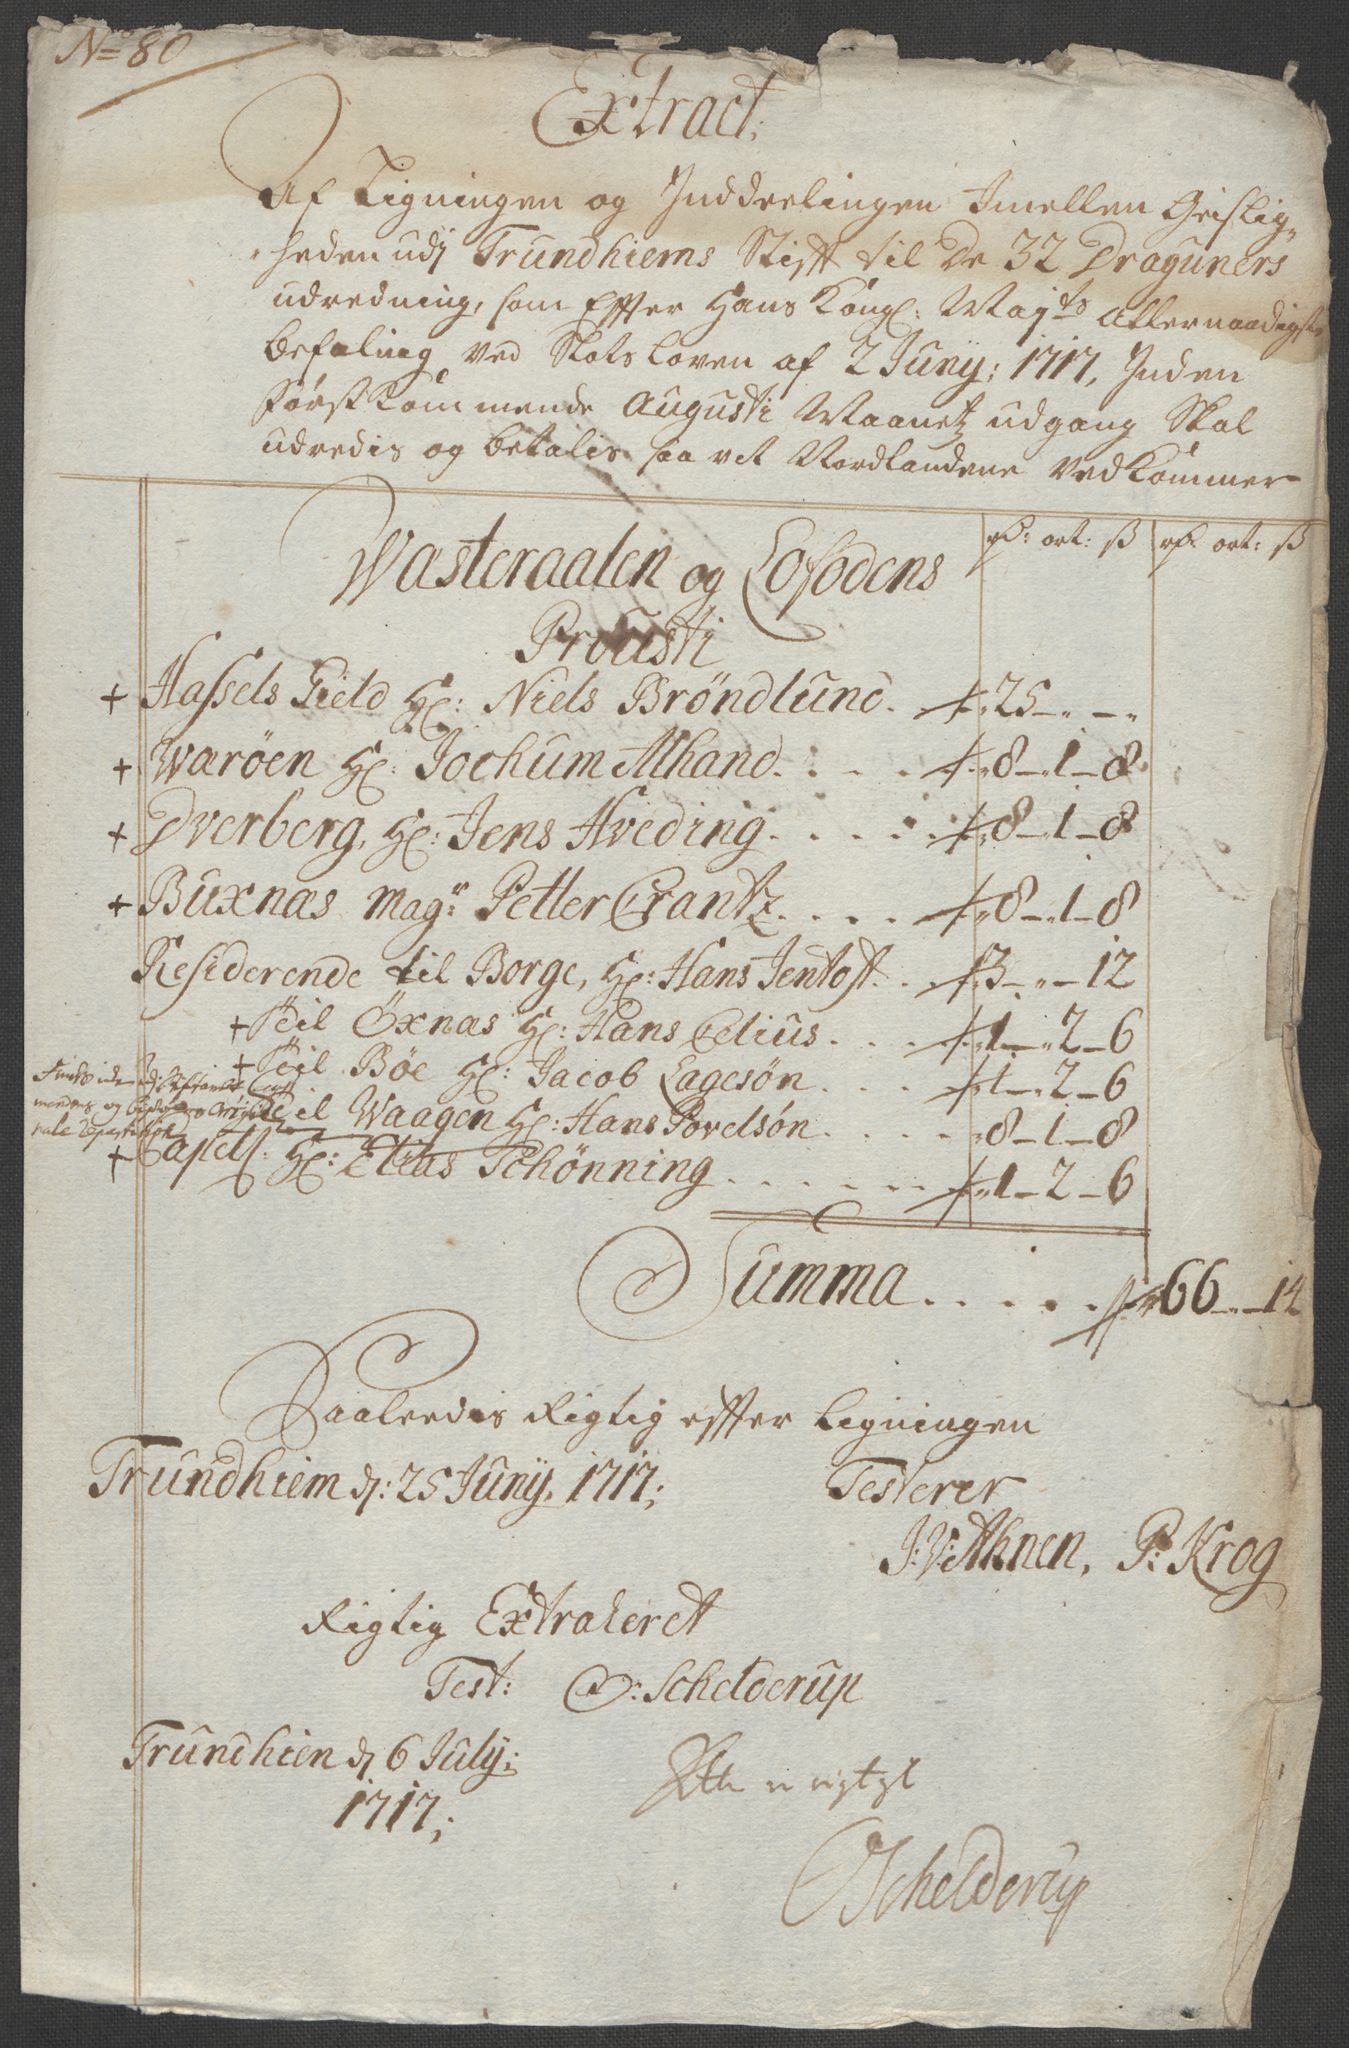 N= 80
Extract;
Af Ligningen og Inddeelingen Imellen Geislig-
heden udj Trundhiems Stift til De 32 Draguners
udredning, som Effter Hans Kongl: Mayts Allernaadigste
befaling ved Slotsloven af 2 Junij: 1717, Inden
først kommende Augusti Maanetz udgang Skal
udredis og betalis saa vit Nordlandene vedkommer
rd: ort: ß rd: ort: ß
Wasteraalen og Lofodens
Prousti
+ Hassels Gield Hr: Niels Bröndlund. 25 - " - "
+ Waröen Hr: Jochum Alhand. . . . 8 - 1 - 8
+ Dverberg, Hr: Jens Hveding. . . . 8 - 1 - 8
+ Buxnas Magr: Petter Crantz. . . . 8 - 1 - 8
Residerende til Borge, Hr: Hans Jentoft. . 3 - " - 12
+ Til Öxnas Hr: Hans Celius. . . . 1 - 2 - 6
+ Til Böe Hr: Jacob Lagesön . . . 1 - 2 - 6
Til Waagen Hr: Hans Povelsön. . . . 8 - 1 - 8
+ Capell: Hr: Elias Schönning . . . . . . 1 - 2 - 6
Summa . . . . . 66 - " - 14
Saaleedis Rigtig effter Ligningen
Trundhiem d: 25 Junij, 1717; Testerer
J: V: Ahnen, P: Krog
Rigtig Extraheret
Test: O: Schelderup
Trundhiem d 6 Julij;
1717;
rigtigt
OSchelderup